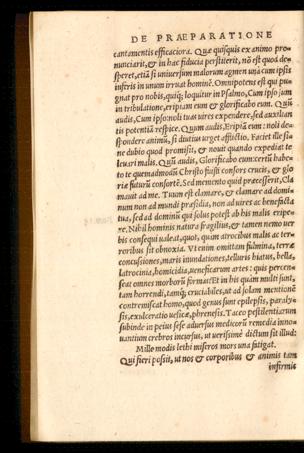 DE PRAEPARATIONE
cantamentis efficaciora. Quæ quisquis ex animo pro-
nunciarit, & in hac fiducia perstiterit, nõ est quod de-
speret, etiã si uniuersum malorum agmen unà cum ipsis
inferis in unum irruat hominẽ. Omnipotens est qui pu-
gnat pro nobis, quiq; loquitur in Psalmo, Cum ipso sum
in tribulatione, eripiam eum & glorificabo eum. Quũ
audis, Cum ipso: noli tuas uires expendere, sed auxilian
tis potentiã respice. Quum audis, Eripiã eum: noli de-
spondere animũ, si diutius urget afflictio. Faciet ille si-
ne dubio quod promisit, & nouit quando expediat te
leuari malis. Quũ audis, Glorificabo eum: certũ habe-
to te quemadmodũ Christo fuisti consors crucis, & glo
riæ futurũ consortẽ. Sed memento quid præcesserit, Cla
mauit ad me. Tuum est clamare, & clamare ad domi
num non ad mundi præsidia, non ad uires ac benefacta
tua, sed ad dominũ qui solus potest ab his malis eripe-
re. Nihil hominis natura fragilius, & tamen nemo uer
bis consequi ualeat, quot, quàm atrocibus malis ac ter-
roribus sit obnoxia. Vt enim omittam fulmina, terræ
concussiones, maris inundationes, telluris hiatus, bella,
latrocinia, homicidia, ueneficarum artes: quis percen-
seat omnes morborũ formas? Et in his quàm multi sunt,
tam horrendi, tamq; cruciabiles, ut ad solam mentionẽ
contremiscat homo, quod genus sunt epilepsis, paraly-
sis, exulceratio uesicæ, phrenesis. Taceo pestilentiarum
subinde in peius sese aduersus medicorũ remedia inno-
uantium crebros incursus, ut uerissimè dictum sit illud:
Mille modis lethi miseros mors una fatigat.
Qui fieri possit, ut nos & corporibus & animis tam
infirmis